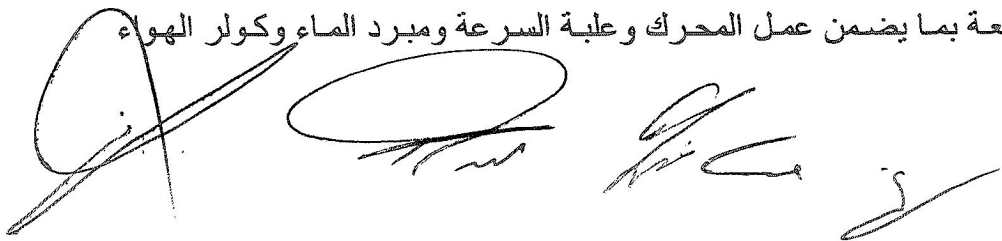 عة بما يضمن عمل المحرك وعلبة السرعة ومبرد الماء وكولر الهواء